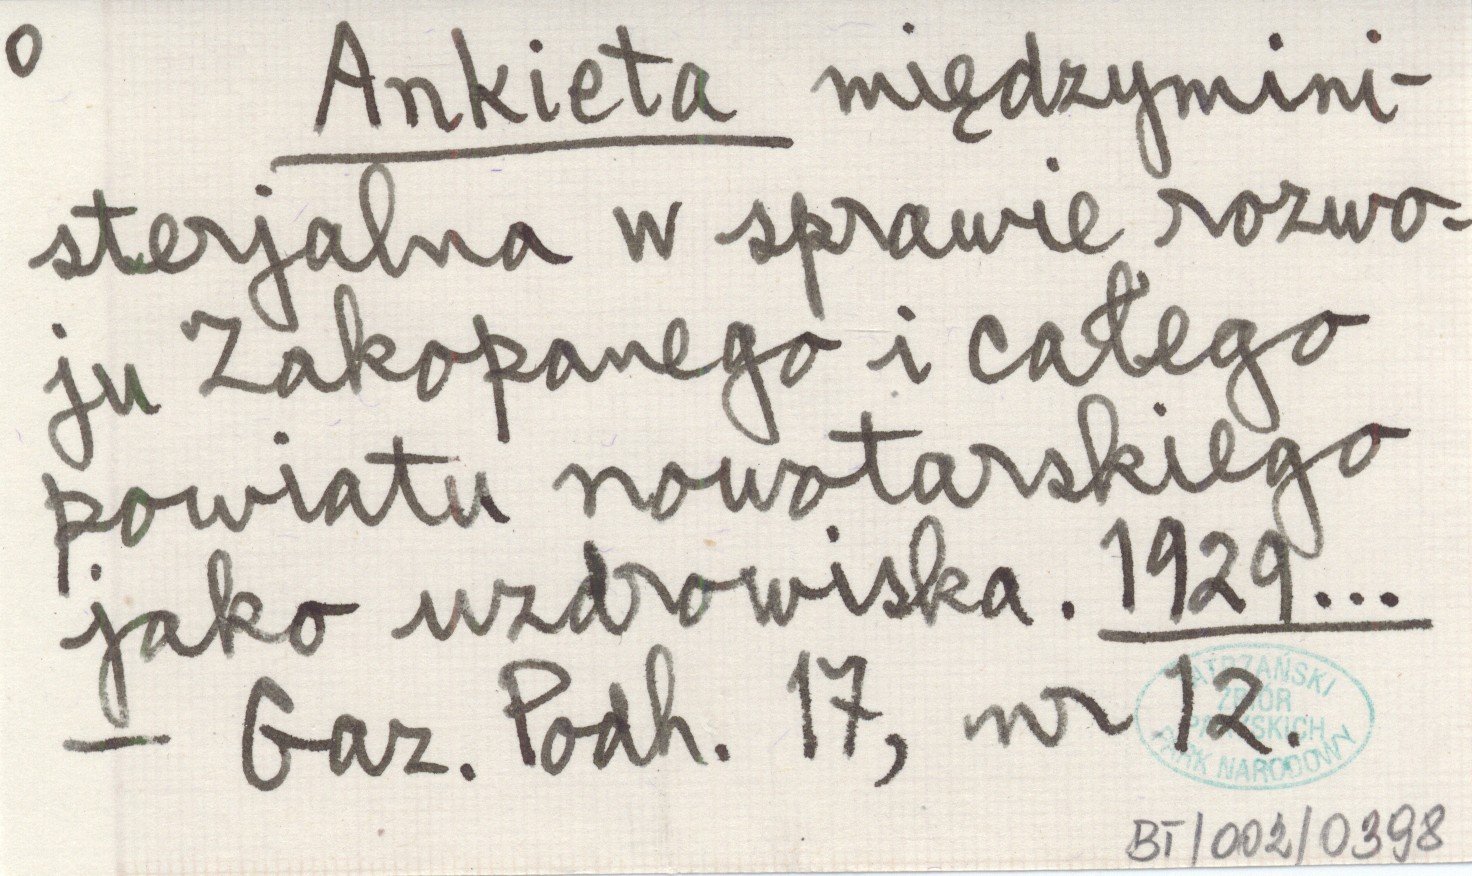 o
Ankieta międzymini-
sterjalna w sprawie rozwo-
ju Zakopanego i całego
powiatu nowotarskiego
jako uzdrowiska. 1929...
— Gaz. Podh. 17, nr 12.
TATRZAŃSKI
ZBIÓR
PARYSKICH
PARK NARODOWY
BT/002/0398